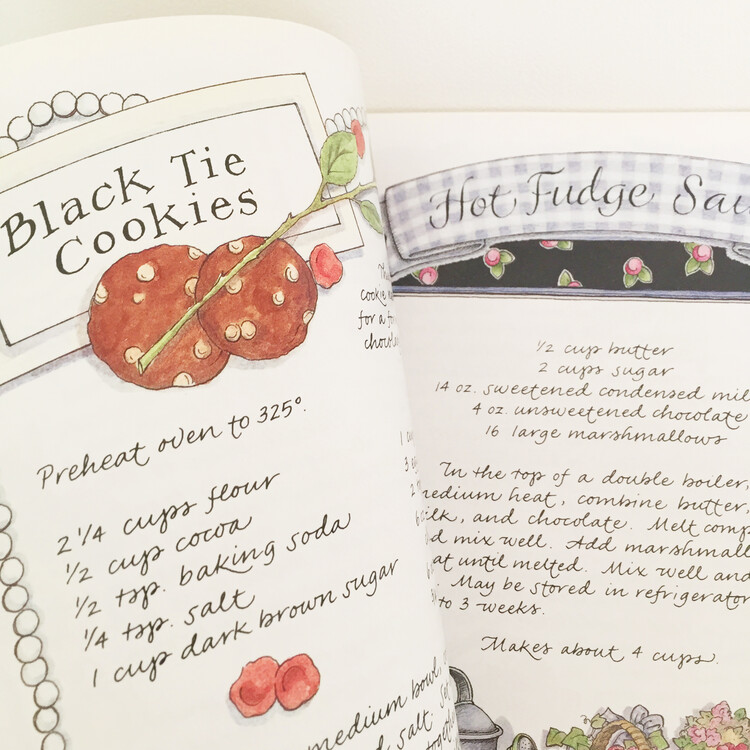 Black Tie
Cookies
cookie
for a
Preheat oven to 325°.
2 1/4 cups flour
1/2 cup cocoa
1/2 tsp. baking soda
1/4 tsp. salt
1 cup dark brown sugar
medium bowl,
salt.
Hot Fudge
1/2 cup butter
2 cups sugar
14 oz. sweetened condensed
4 oz. unsweetened chocolate
16 large marshmallows
In the top of a double boiler,
heat, combine butter,
and chocolate. Melt
mix well. Add
until melted. Mix well and
May be stored in refrigerator
to 3 weeks.
Makes about 4 cups.